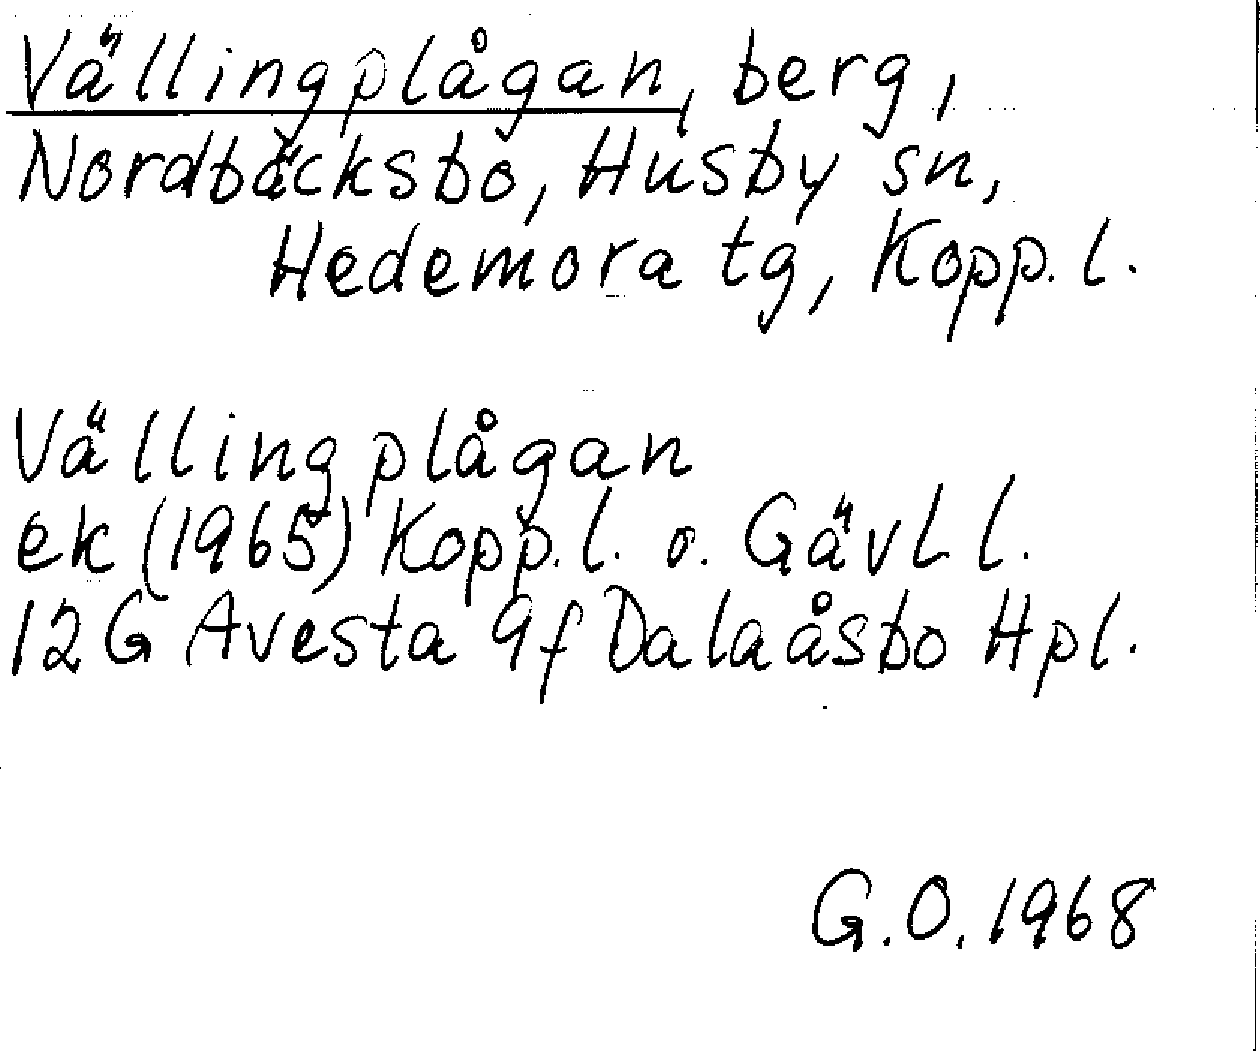 Vällingplågan, berg,
Nordbäcksbo, Husby sn,
Hedemora tg, Kopp. l.
Vällingplågan
ek (1965) Kopp. l. o. Gävl. l.
12 G Avesta 9f Dalaåsbo Hpl.
G.O. 1968